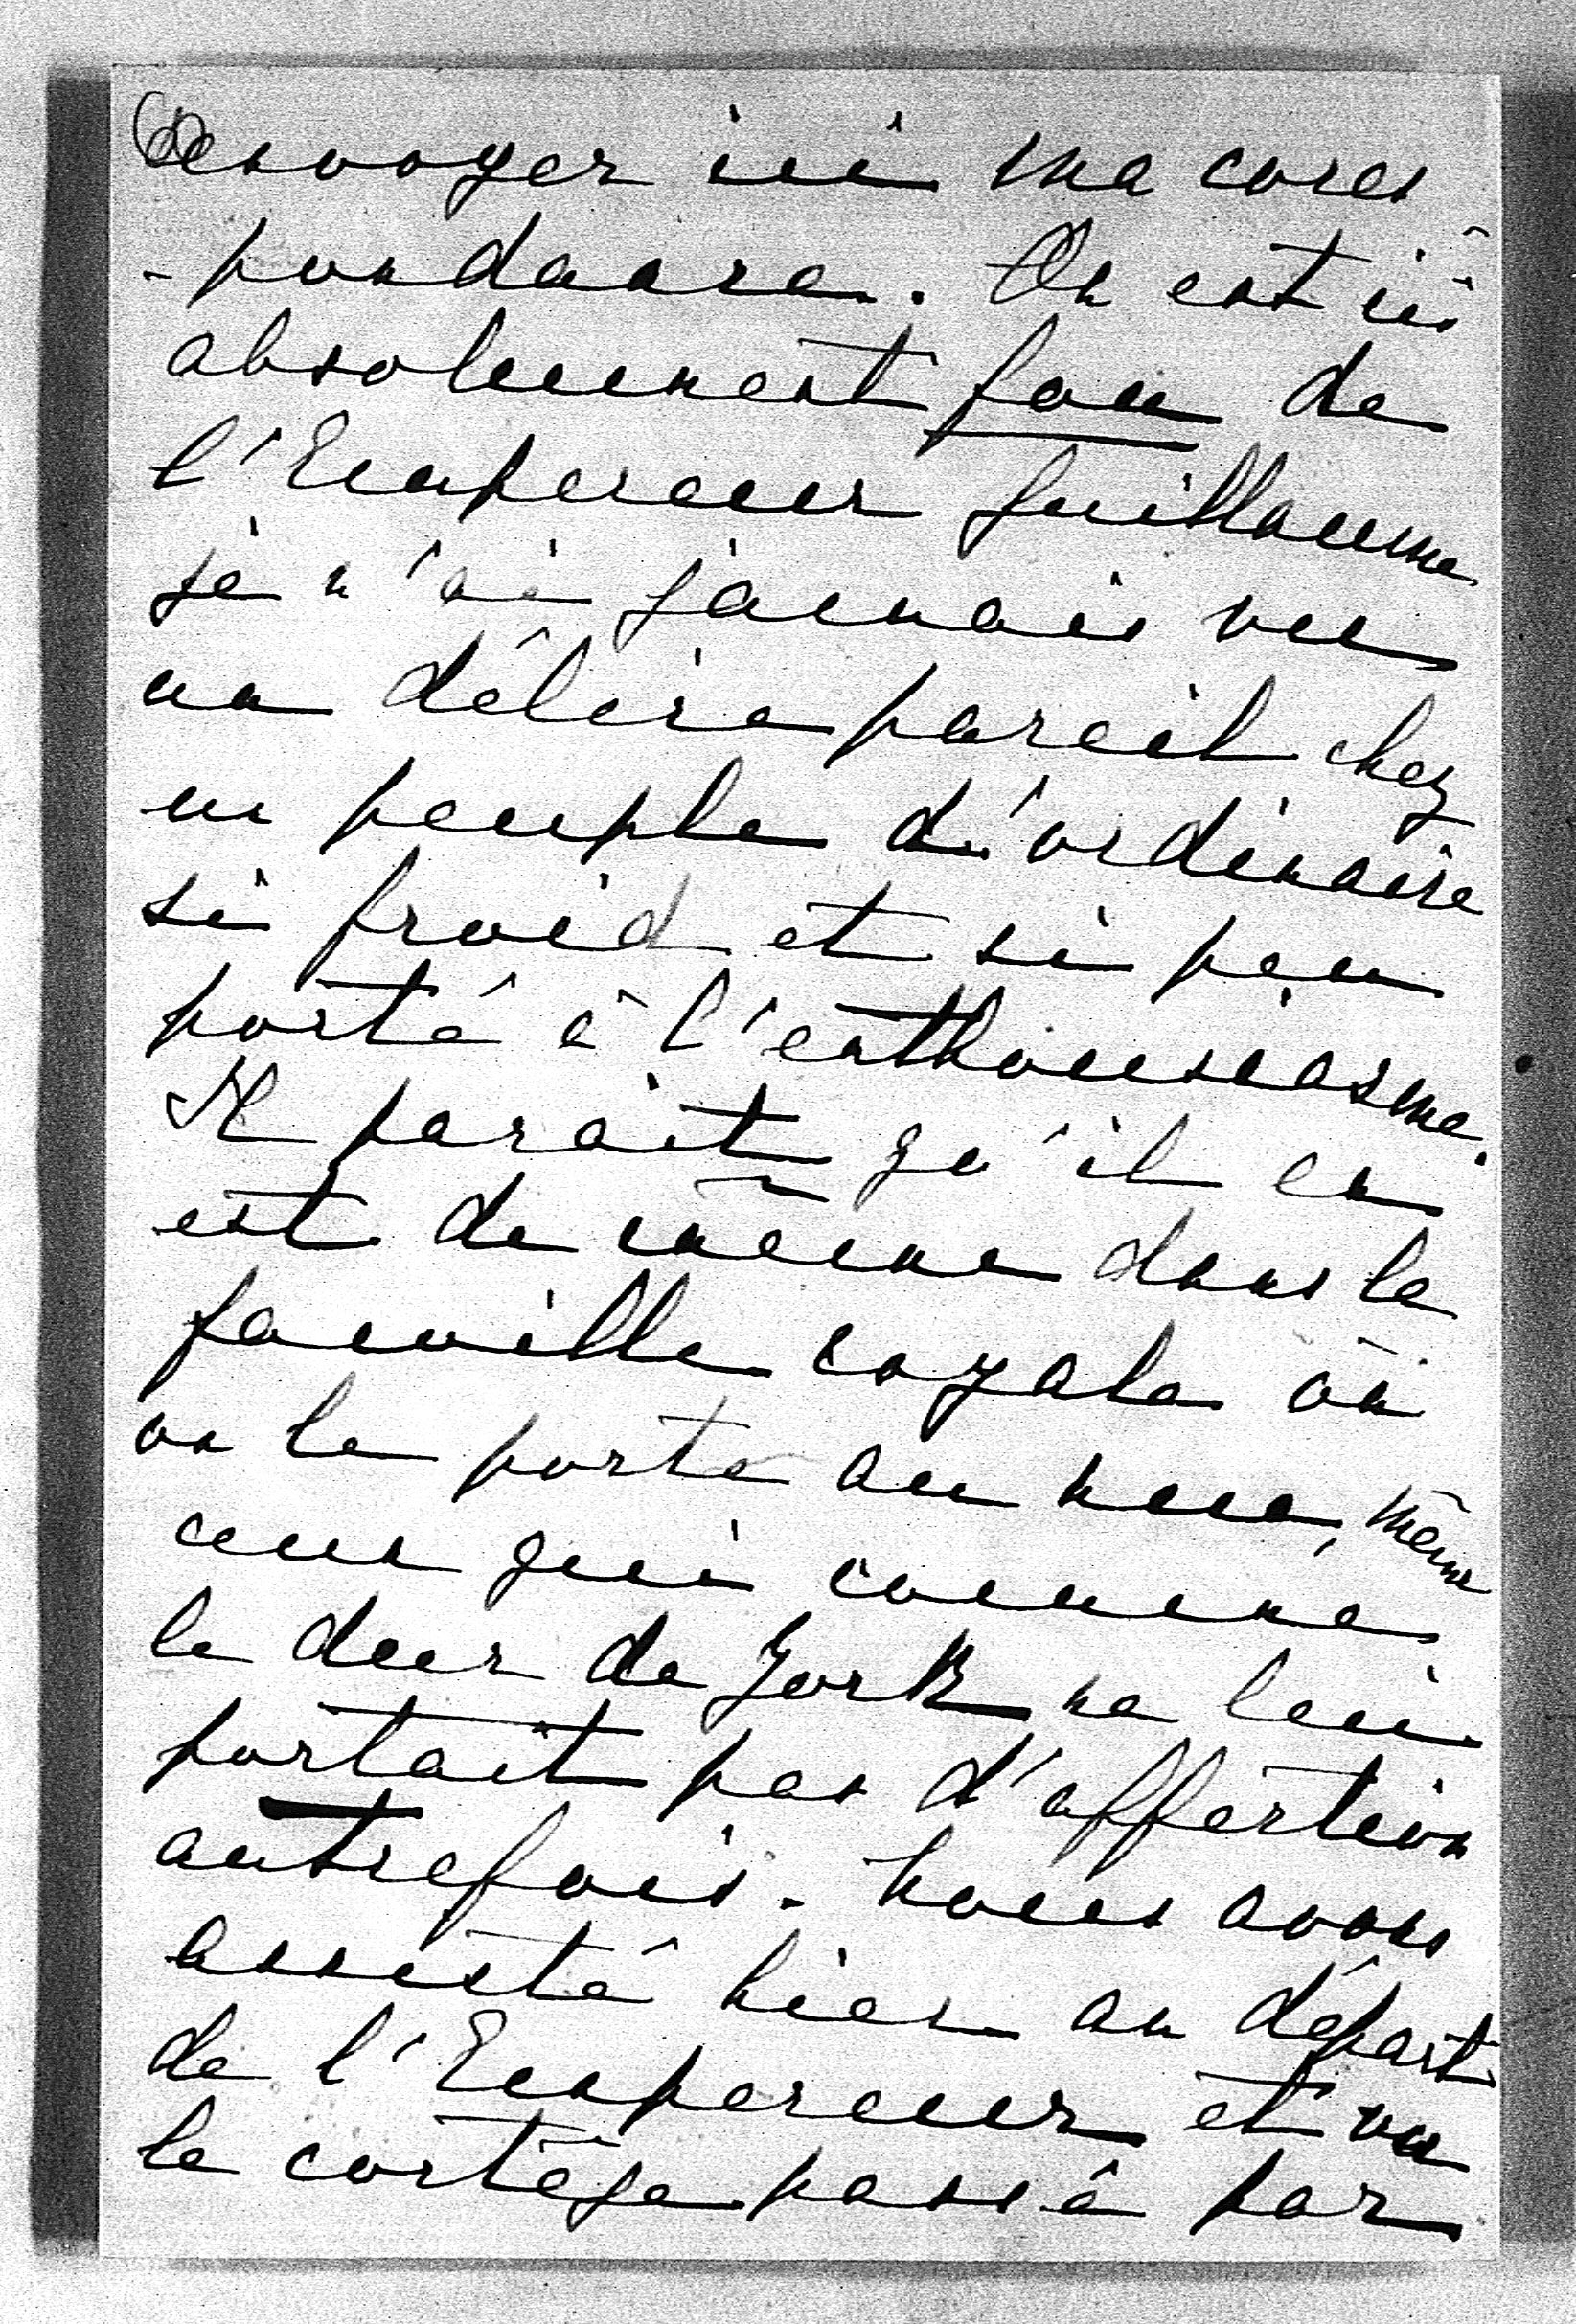 envoyer ici ma cores
-pondance. On est ici
absolument fou de
l'Empereur Guillaume
je n'ai jamais vu
un délire pareil chez
un peuple d'ordinaire
si froid et si peu
porté à l'enthousiasme.
Il parait qu'il en
est de même dans la
famille royale où
on le porte aux nues, même
ceux qui comme
le duc de York ne lui
portait pas d'affection
autrefois. Nous avons
assisté hier au départ
de l'Empereur et vu
le cortège passé par